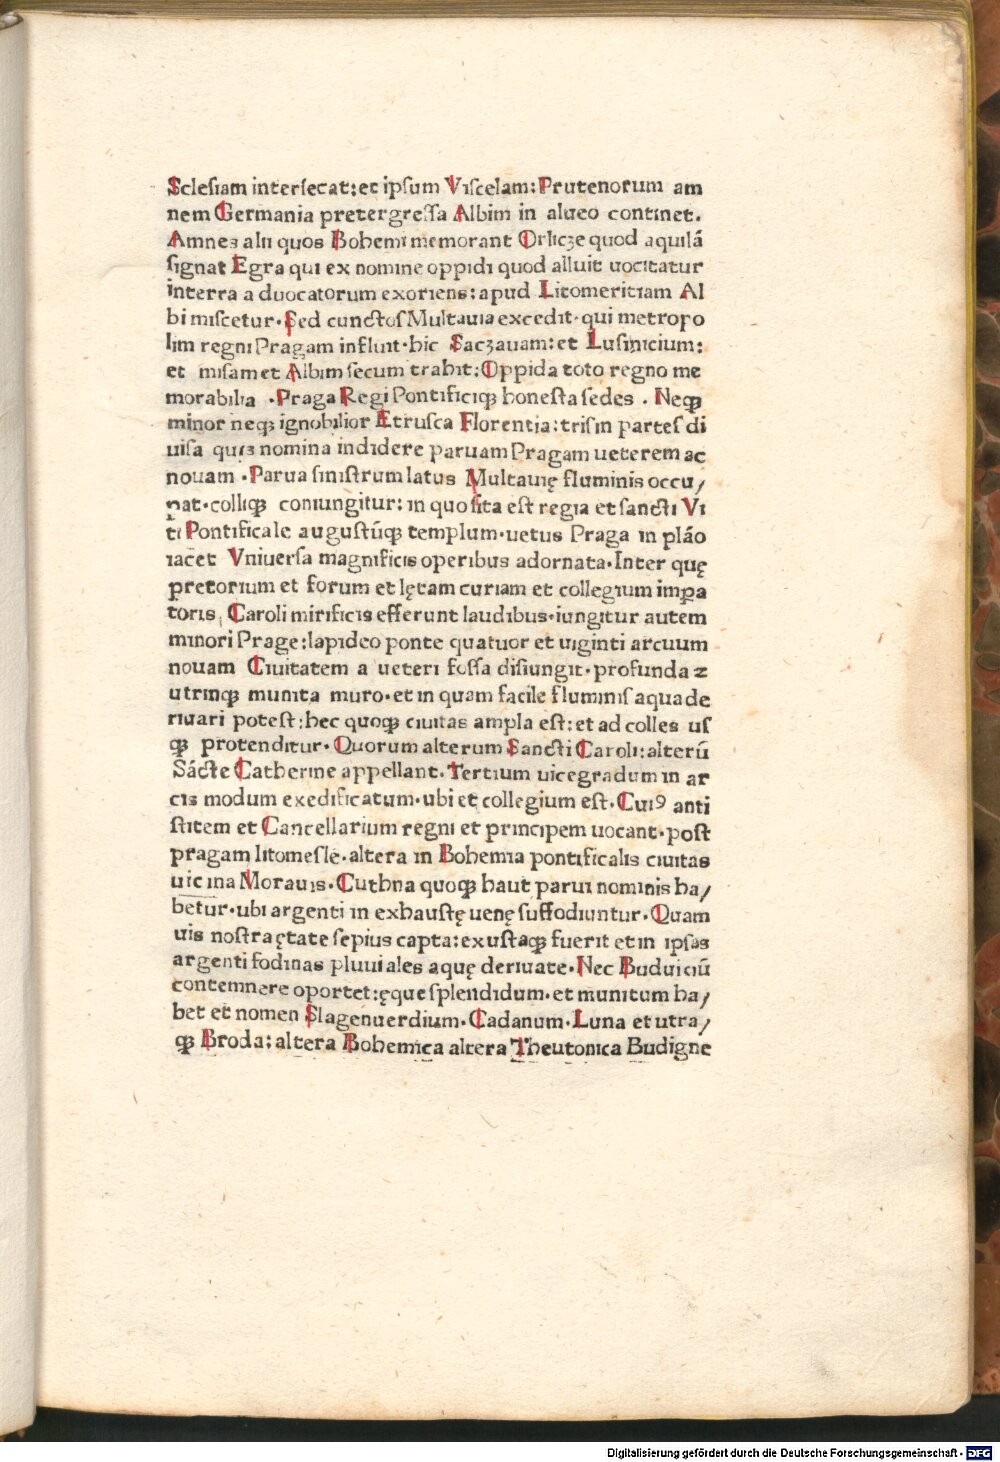 Sclesiam interſecat: et ipſum Viſcelam: Prutenorum am
nem Germania pretergreſſa Albim in alueo continet.
Amnes alii quos Bohemi memorant Orlicze quod aquilā
ſignat Egra qui ex nomine oppidi quod alluit uocitatur
interra aduocatorum exoriens: apud Litomeritiam Al
bi miſcetur. Sed cunctoſ Multauia excedit. qui metropo
lim regni Pragam influit. hic Saczauam: et Luſinicium:
et miſam et Albim ſecum trahit: Oppida toto regno me
morabilia . Praga Regi Pontificiqꝫ honeſta ſedes . Neqꝫ
minor neqꝫ ignobilior Etrusca Florentia: triſin parteſ di
uiſa quis nomina indidere paruam Pragam ueterem ac
nouam . Parua ſiniſtrum latus Multauię fluminis occu/
pat. colliqꝫ coniungitur: in quo ſita eſt regia et ſancti Vi
ti Pontificale auguſtūqꝫ templum. uetus Praga in plāo
iacet Vniuerſa magnificis operibus adornata. Inter quę
pretorium et forum et lętam curiam et collegium impa
toris, Caroli mirificis efferunt laudibus. iungitur autem
minori Prage: lapideo ponte quatuor et uiginti arcuum
nouam Ciuitatem a ueteri foſſa diſiungit. profunda ⁊
utrinqꝫ munita muro. et in quam facile fluminiſ aqua de
riuari poteſt: hec quoqꝫ ciuitas ampla eſt: et ad colles uſ
qꝫ protenditur. Quorum alterum Sancti Caroli: alterū
Sācte Catherine appellant. Tertium uicegradum in ar
cis modum exedificatum. ubi et collegium eſt. Cuiꝰ anti
ſtitem et Cancellarium regni et principem uocant. poſt
pragam litomeſle. altera in Bohemia pontificalis ciuitas
uicina Morauis. Cuthna quoqꝫ haut parui nominis ha/
betur. ubi argenti in exhauſtę uenę ſuffodiuntur. Quam
uis noſtra ętate ſepius capta: exuſtaqꝫ fuerit et in ipſas
argenti fodinas pluuiales aquę deriuate. Nec Buduiciū
contemnere oportet: ęque ſplendidum. et munitum ha/
bet et nomen Slagenuerdium. Cadanum. Luna et utra/
qꝫ Broda: altera Bohemica altera Theutonica Budigne
Digitalisierung gefördert durch die Deutsche Forschungsgemeinschaft - DFG